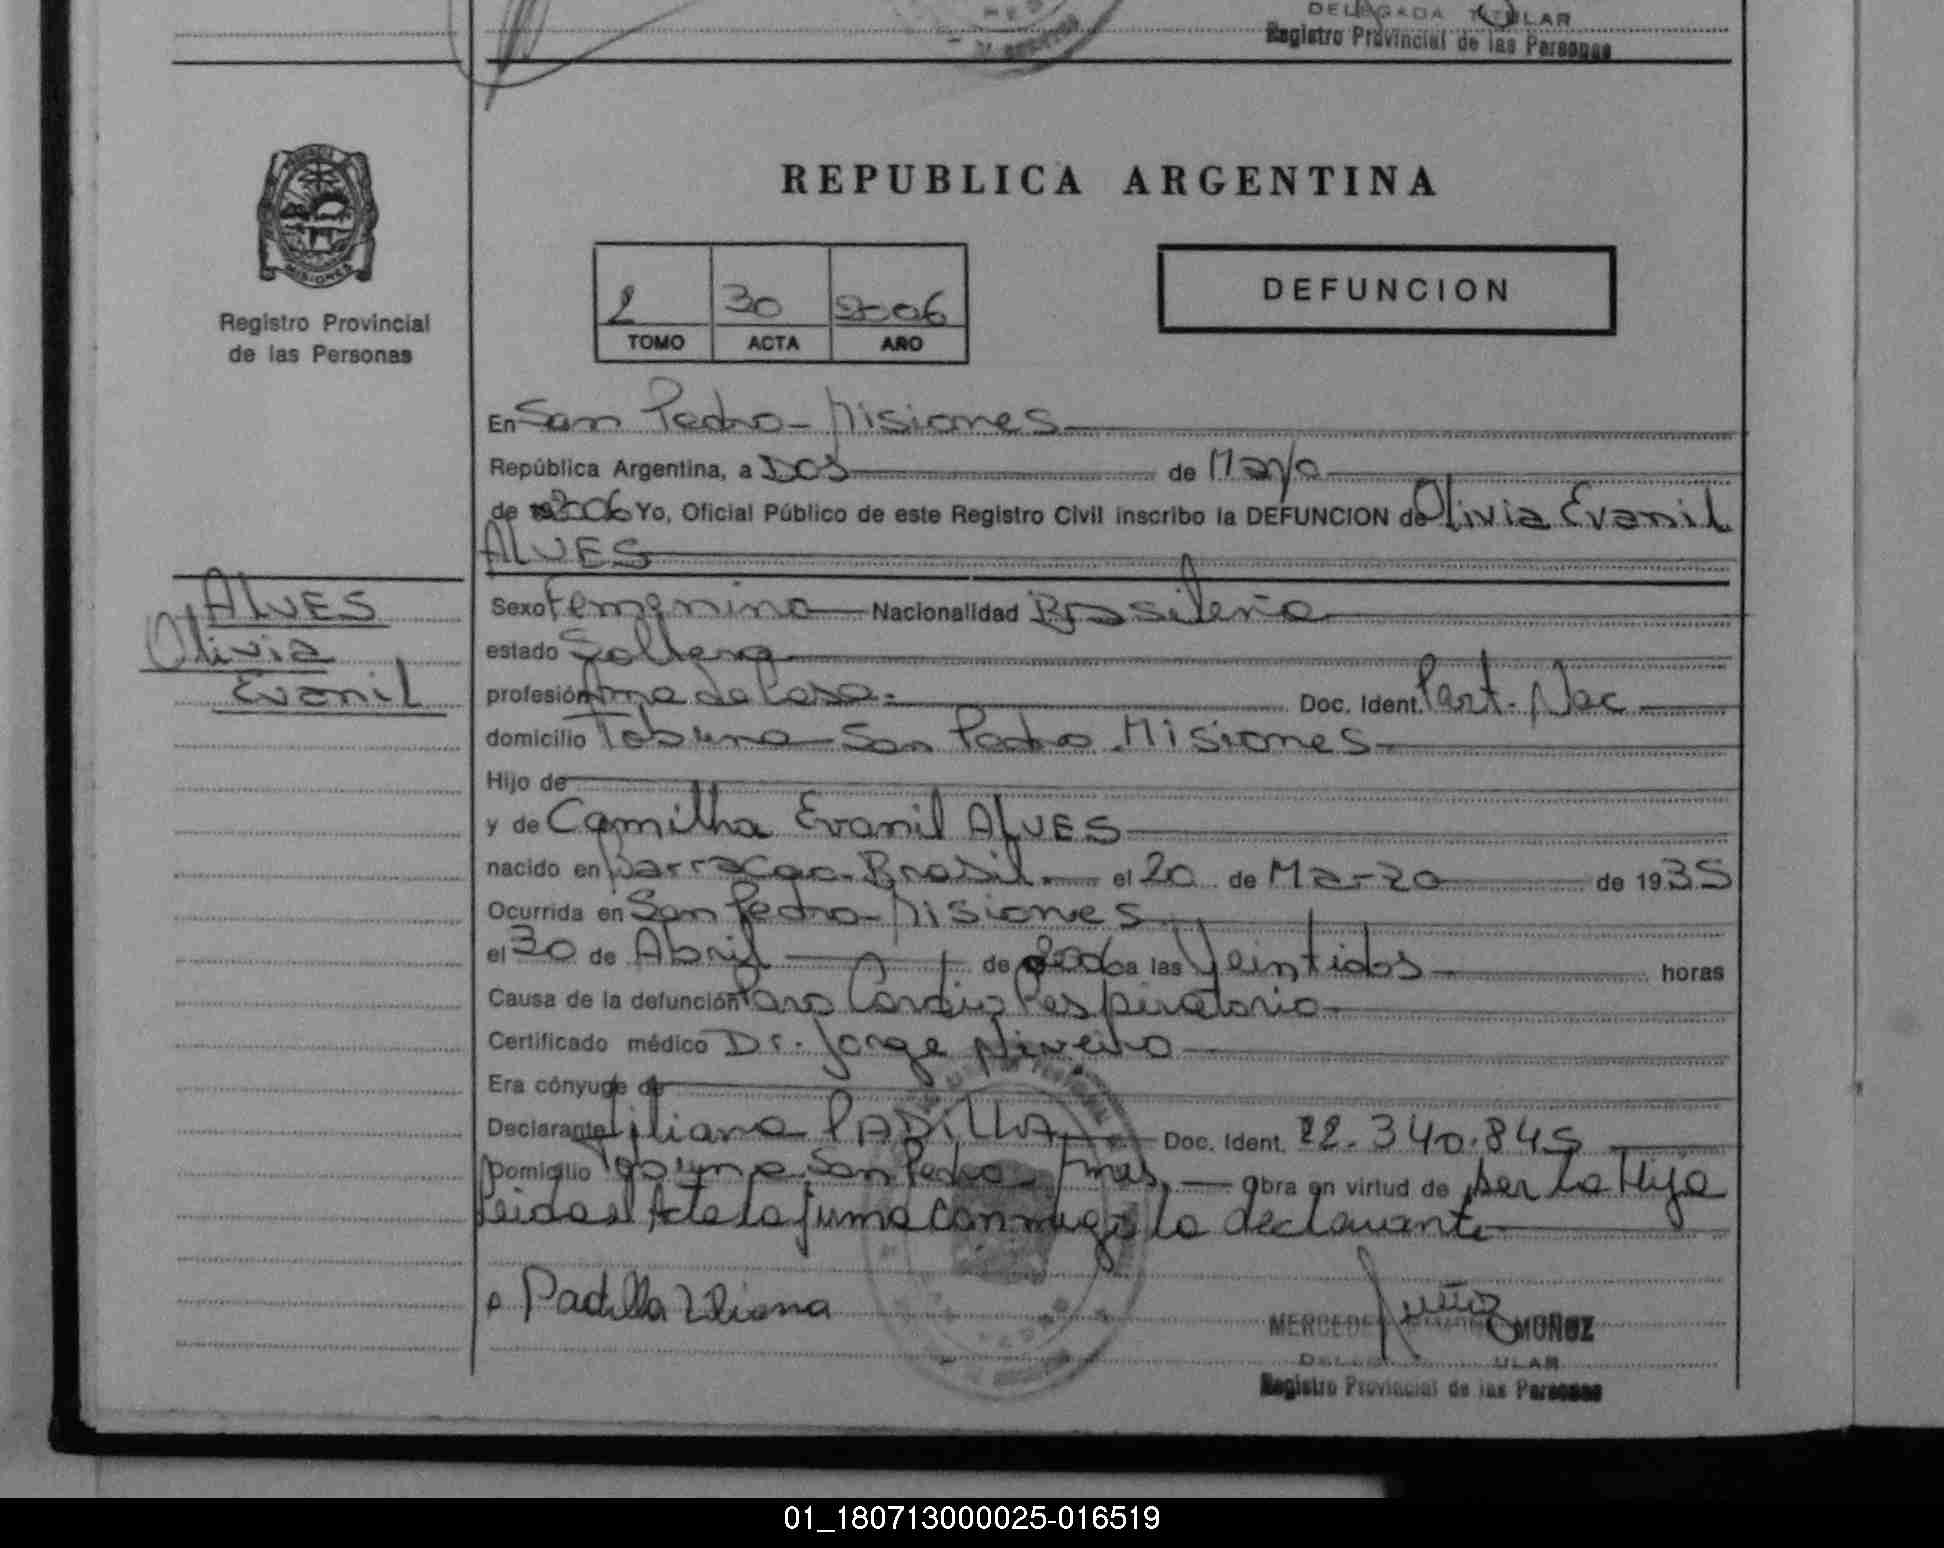 DELEGADA TITULAR
Registro Provincial de las Personas
MISIONES
Registro Provincial
de las Personas
REPUBLICA ARGENTINA
2 30 2006
TOMO ACTA AÑO
DEFUNCION
En San Pedro - Misiones
República Argentina, a Dos de Mayo
de 2006 Yo, Oficial Público de este Registro Civil inscribo la DEFUNCION de Olivia Evanil
ALVES
ALVES
Olivia
Evanil
Sexo Femenino Nacionalidad Brasileña
estado Soltera
profesión Ama de Casa. Doc. Ident. Part. Nac
domicilio Tobuna San Pedro Misiones
Hijo de
y de Camilha Evanil ALVES
nacido en Barracao. Brasil. el 20 de Marzo de 1935
Ocurrida en San Pedro - Misiones
el 30 de Abril de 2006 a las Veintidos horas
Causa de la defunción Paro Cardio Respiratorio
Certificado médico Dr. Jorge
Era cónyuge de
Declarante Liliana PADILLA Doc. Ident. 22.340.845
Domicilio Tobuna San Pedro Mnes. obra en virtud de ser la Hija
Leida el Acta la firma conmigo la declarante
Padilla Liliana
MERCEDES MUÑOZ
Registro Provincial de las Personas
01_180713000025-016519